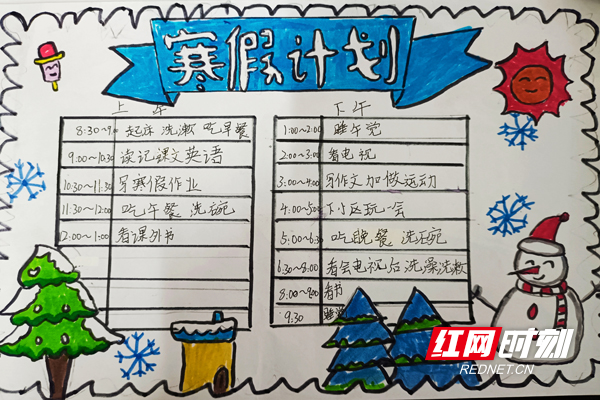 寒假计划
上午
8:30~9:0 起床 洗漱 吃早餐
9:00~10:30 读记课文英语
10:30~11:30 写寒假作业
11:30~12:00 吃午餐 洗碗
12:00~1:00 看课外书
下午
1:00~2:00 睡午觉
2:00~3:00 看电视
3:00~4:00 写作文加做运动
4:00~5:00 下小区玩一会
5:00~6:30 吃晚餐 洗碗
6:30~8:00 看会电视后洗澡洗漱
8:00~9:00 看书
9:30 睡
红网时刻
REDNET.CN